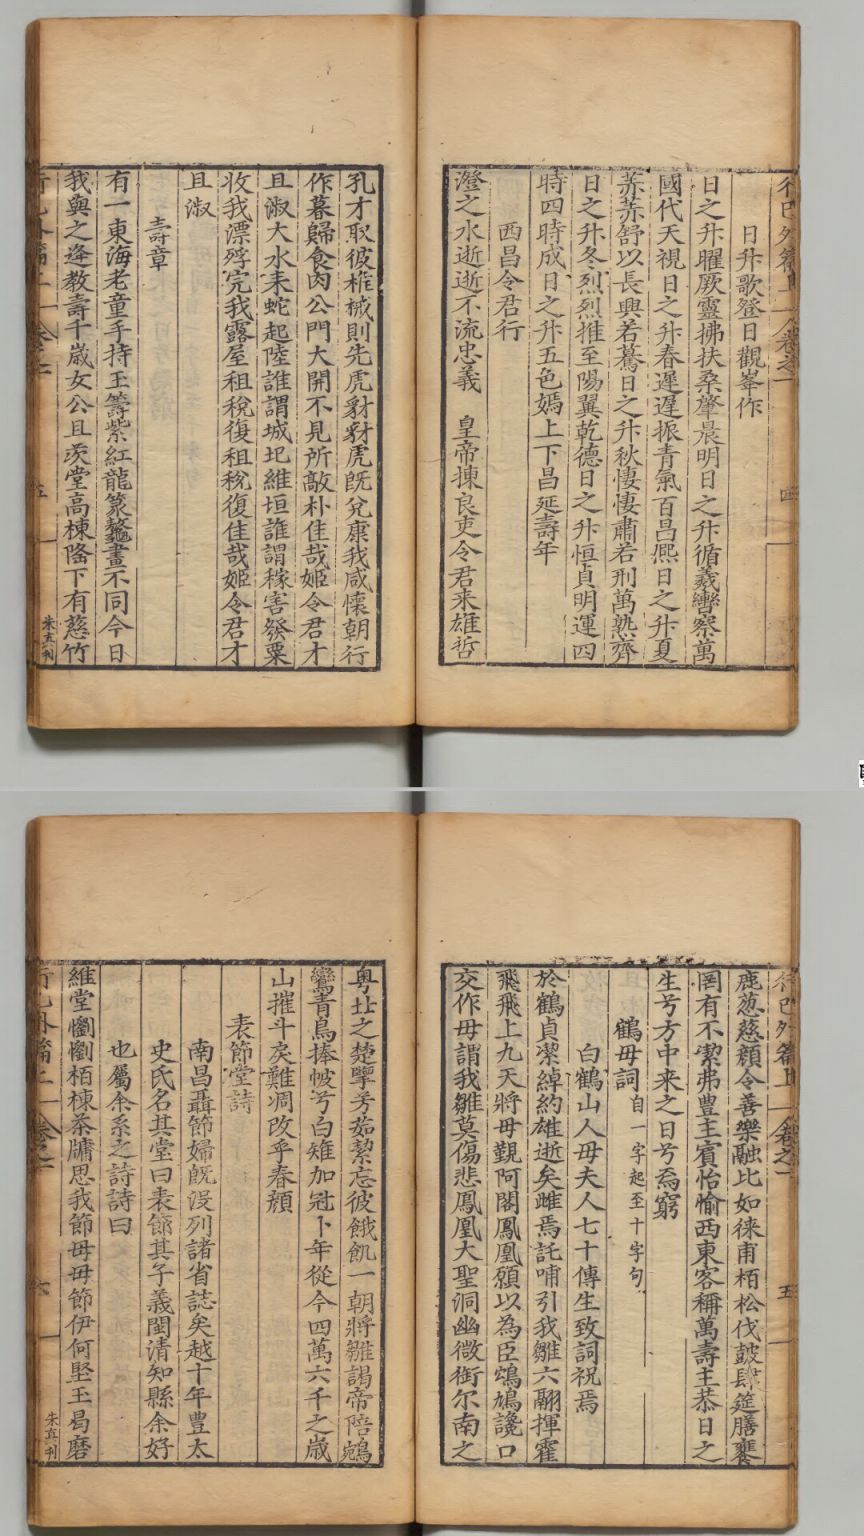 日升歌登日觀峯作
日之升曜厥靈拂扶桑肇晨明日之升循羲轡察萬
國代天視日之升春遲遲振青氣百昌熈日之升夏
荞荞舒以長興若驀日之升秋悽悽肅若刑萬熟齊
日之升冬烈烈推至陽翼乾德日之升恒貞明運四
時四時成日之升五色嫣上下昌延壽年
西昌令君行
澄之水逝逝不流忠義　皇帝揀良吏令君来雄哲
孔才取彼樁械則先虎豺豺虎旣兊康我咸懷朝行
作暮歸食肉公門大開不見所敵朴佳哉姬令君才
且淑大水来蛇起陸誰謂城圯維垣誰謂稼害發粟
收我漂殍完我露屋租稅復租稅復佳哉姬令君才
且淑
壽章
有一東海老童手持玉籌紫紅龍篆鼇畫不同今日
我與之逄教壽千歳女公且庡堂高棟隆下有慈竹
五
朱直刊
鹿葱慈顏令善樂融比如徠甫栢松伐鼓肆筵膳饔
罔有不潔弗豊主賓怡愉西東客稱萬壽主恭日之
生兮方中来之日兮焉窮
鶴毋詞自一字起至十字句
白鶴山人毋夫人七十傳生致詞祝焉
於鶴貞潔綽約雄逝矣雌焉託哺引我雛六翮揮霍
飛飛上九天將毋覲阿閣鳳凰頟以為臣鴆鳩讒口
交作毋謂我雛莫傷悲鳳凰大聖洞幽微銜尔南之
五
粤壮之楚擥芳茹絜忘彼餓飢一朝將雛謁帝陪鵷
鸞青鳥捧帔兮白雉加冠卜年從今四萬六千之歳
山摧斗矣難凋改乎春顏
表節堂詩
南昌聶節婦旣没列諸省誌矣越十年豊太
史氏名其堂曰表節其子義閩清知縣余好
也屬余系之詩詩曰
維堂懰懰栢棟茶牗思我節毋毋節伊何堅玉曷磨
六
朱直刊